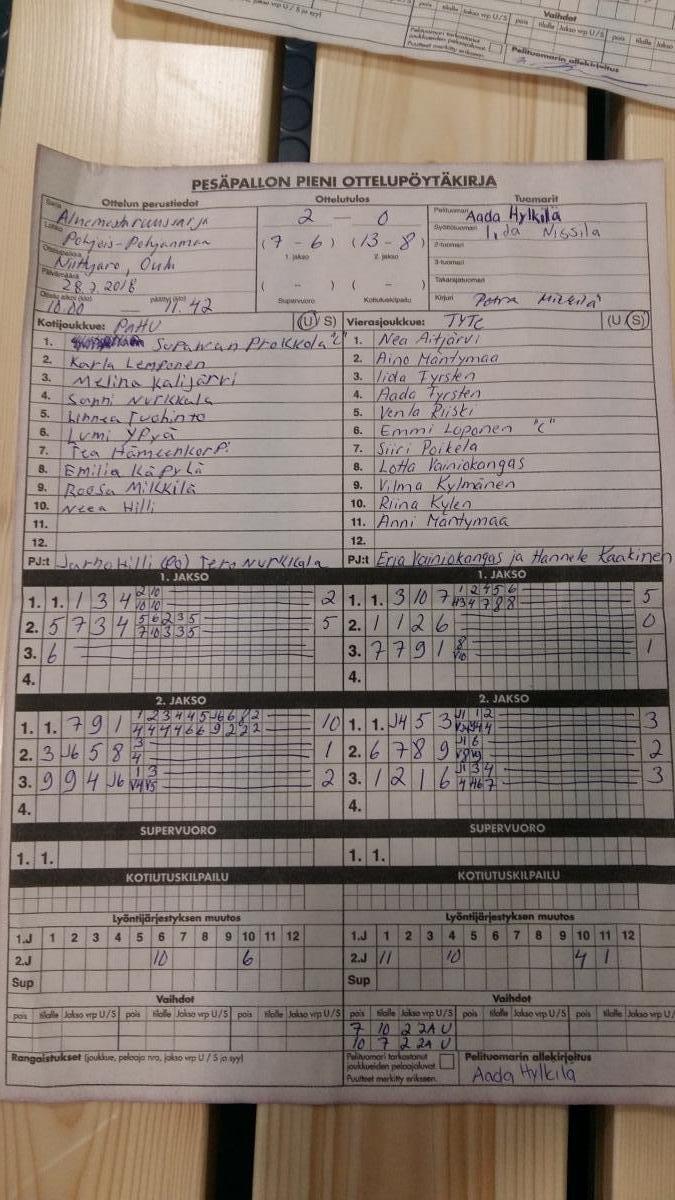 pois tilalle Jakso vrp U/S
Vaihdot
Pelituomarin allekirjoitus
PESÄPALLON PIENI OTTELUPÖYTÄKIRJA
Ottelun perustiedot Ottelutulos Tuomarit
Sarja
2 — 0
Pelituomari Aada Hylkilä
Lohko Pohjois-Pohjanmaa
(7 - 6) (13 - 8)
Syöttötuomari Iida Nissilä
Ottelupaikka Niittyaro, Oulu
1. jakso 2. jakso
2-tuomari
Päivämäärä 28.7.2018
3-tuomari
( - ) ( - )
Takarajatuomari
10.00 — päättyi (klo) 11.42
Supervuoro Kotiutuskilpailu
Kirjuri Petra Mikkilä
Kotijoukkue: PAHU (U/S)
Vierasjoukkue: TYTE (U/S)
1. Prokkola "C"
2. Karla Lemponen
3. Melina Kalijärvi
4. Sanni Nurkkala
5. Linnea Tuohinto
6. Lumi Ypyä
7. Tea Hämeenkorpi
8. Emilia Käpylä
9. Roosa Mikkilä
10. Neea Hilli
11.
12.
PJ:t Jarno Hilli (PJ) Tero Nurkkala
1. Nea Aitjärvi
2. Aino Mäntymaa
3. Iida Tyrsten
4. Aada Tyrsten
5. Venla Riiski
6. Emmi Loponen "C"
7. Siiri Poikela
8. Lotta Vainiokangas
9. Vilma Kylmänen
10. Riina Kylen
11. Anni Mäntymaa
12.
PJ:t Erja Vainiokangas ja Hannele Kaakinen
1. JAKSO
1. 1. 1 3 4 2 10 2
10 10
2. 5 7 3 4 5 6 2 3 5 5
7 10 3 3 5
3. 6
4.
1. JAKSO
1. 1. 3 10 7 1 2 4 5 6 5
2. 1 1 2 6 0
3. 7 7 9 1 8 1
4.
2. JAKSO
1. 1. 7 9 1 1 2 3 4 4 5 J6 6 8 2 10
4 4 4 4 6 6 9 2 2 2
2. 3 J6 5 8 3 1
4
3. 9 9 4 J6 1 3 2
V4 V5
4.
2. JAKSO
1. 1. J4 5 3 J1 1 2 3
2. 6 7 8 9 J1 6 2
V8 V9
3. 1 2 1 6 J1 3 4 3
4.
SUPERVUORO
1. 1.
SUPERVUORO
1. 1.
KOTIUTUSKILPAILU
KOTIUTUSKILPAILU
Lyöntijärjestyksen muutos
1.J 1 2 3 4 5 6 7 8 9 10 11 12
2.J 10 6
Sup
Lyöntijärjestyksen muutos
1.J 1 2 3 4 5 6 7 8 9 10 11 12
2.J 11 10 4 1
Sup
Vaihdot
pois tilalle Jakso vrp U/S pois tilalle Jakso vrp U/S pois tilalle Jakso vrp U/S
Vaihdot
pois tilalle Jakso vrp U/S pois tilalle Jakso vrp U/S pois tilalle Jakso vrp U/S
7 10 2 2A U
10 7 2 2A U
Rangaistukset (joukkue, pelaaja nro, jakso vrp U / S ja syy)
Pelituomari tarkastanut
joukkueiden pelaajaluvat
Puutteet merkitty erikseen.
Pelituomarin allekirjoitus
Aada Hylkilä